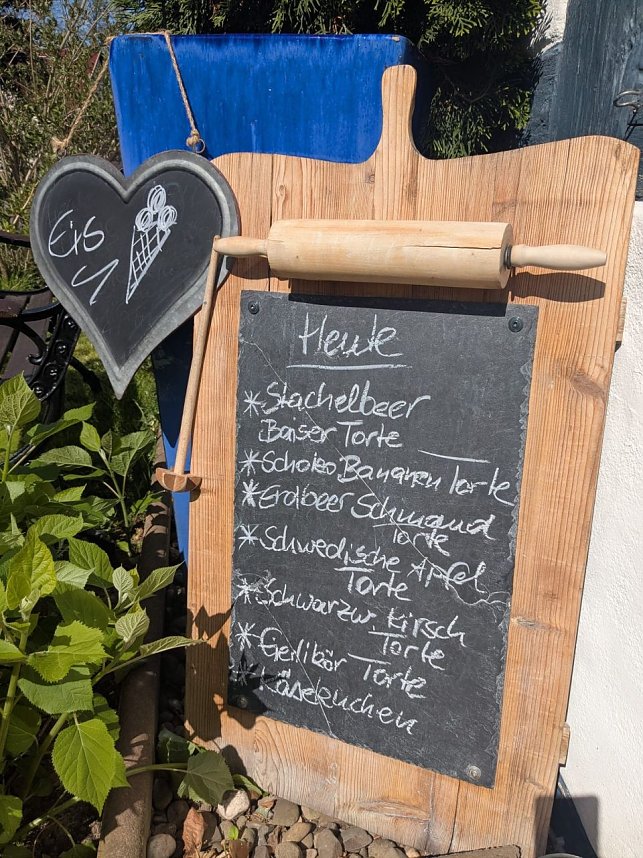 Eis
Heute
* Stachelbeer
Baiser Torte
* Schoko Bananen Torte
* Erdbeer Schmand
Torte
* Schwedische Apfel
Torte
* Schwarzw. Kirsch
Torte
* Eierlikör Torte
* Käsekuchen